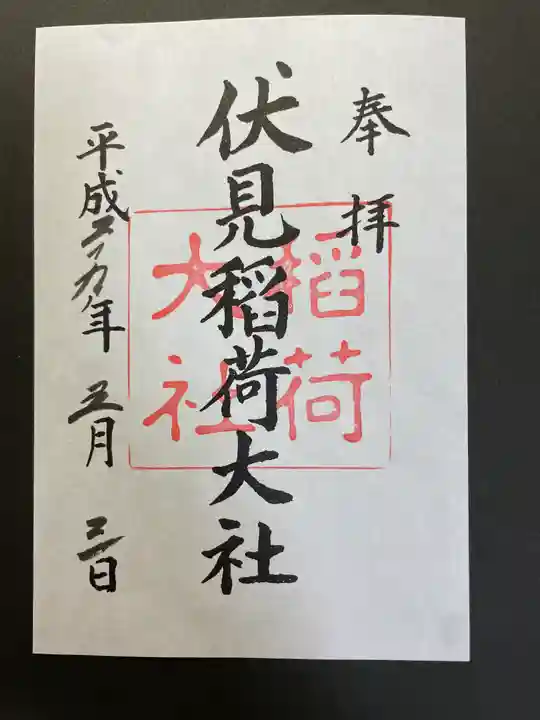 奉拝
伏見稲荷大社
稲荷
大社
平成二十九年 五月 三日